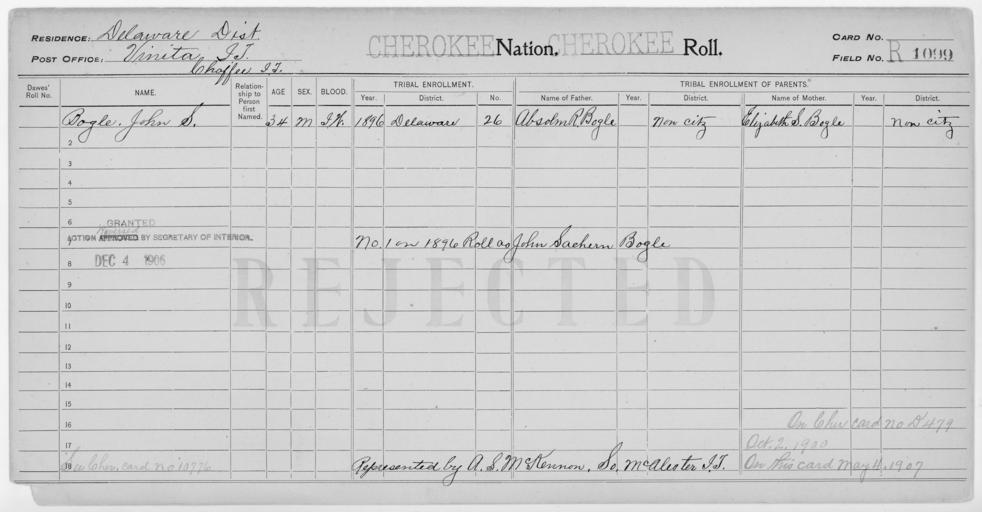 RESIDENCE: Delaware Dist.
POST OFFICE: Vinita, I.T.
Chaffee I.T.
CHEROKEE Nation. CHEROKEE Roll.
CARD NO.
FIELD NO. R 1099
Dawes' Roll No. NAME. Relationship to Person first Named. AGE SEX. BLOOD. TRIBAL ENROLLMENT. TRIBAL ENROLLMENT OF PARENTS.
Year. District. No. Name of Father. Year. District. Name of Mother. Year. District.
Bogle, John S. 34 M I.W. 1896 Delaware 26 Absolm R. Bogle Non citz Elizabeth S. Bogle Non citz
2
3
4
5
6
GRANTED
reversed
7
ACTION APPROVED BY SECRETARY OF INTERIOR.
No. 1 on 1896 Roll as John Sachern Bogle
8
DEC 4 1906
REJECTED
9
10
11
12
13
14
15
16
On Cher card no D 479
17
Oct. 2, 1900
18
See Cher. card no 10776
Represented by A. S. McKennon, So. McAlester I.T.
On this card May 4, 1907